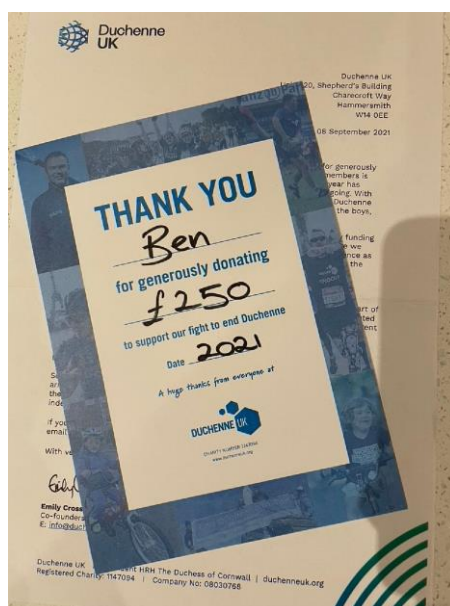 Duchenne
UK
Duchenne UK
20, Shepherd's Building
Charecroft Way
Hammersmith
W14 0EE
08 September 2021
for generously
members is
year has
going. With
Duchenne
the boys,
funding
we
as
the
art of
THANK YOU
Ben
for generously donating
£250
to support our fight to end Duchenne
Date 2021
A huge thanks from everyone at
DUCHENNE UK
www.duchenneuk.org
If you
email
With
Emily Cross
Co-founders
E: info@duch
Duchenne UK HRH The Duchess of Cornwall | duchenneuk.org
Registered Charity: 1147094 | Company No: 08030768